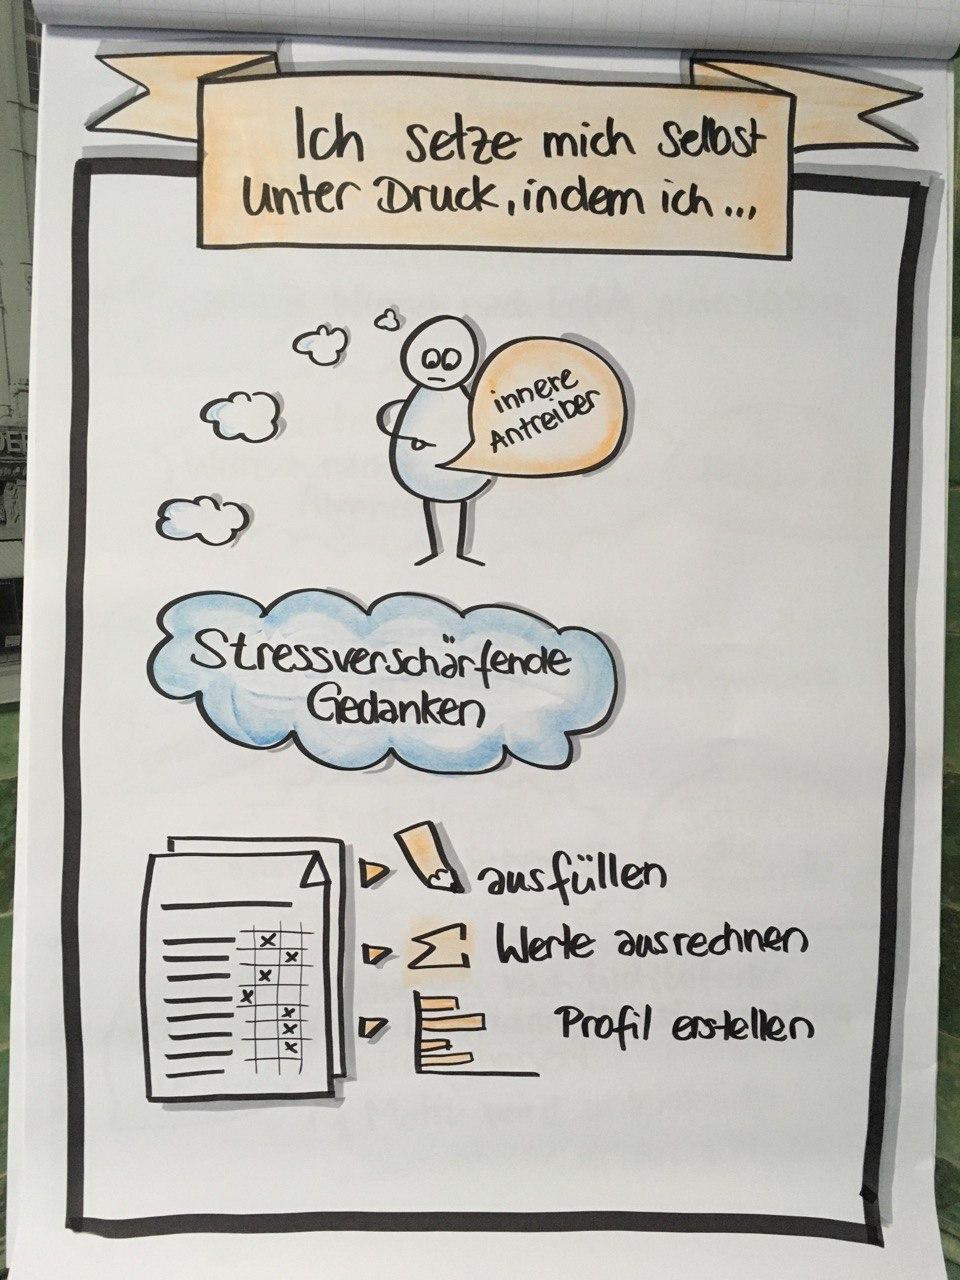 Ich setze mich selbst
unter Druck, indem ich...
innere
Antreiber
Stressverschärfende
Gedanken
ausfüllen
Werte ausrechnen
Profil erstellen